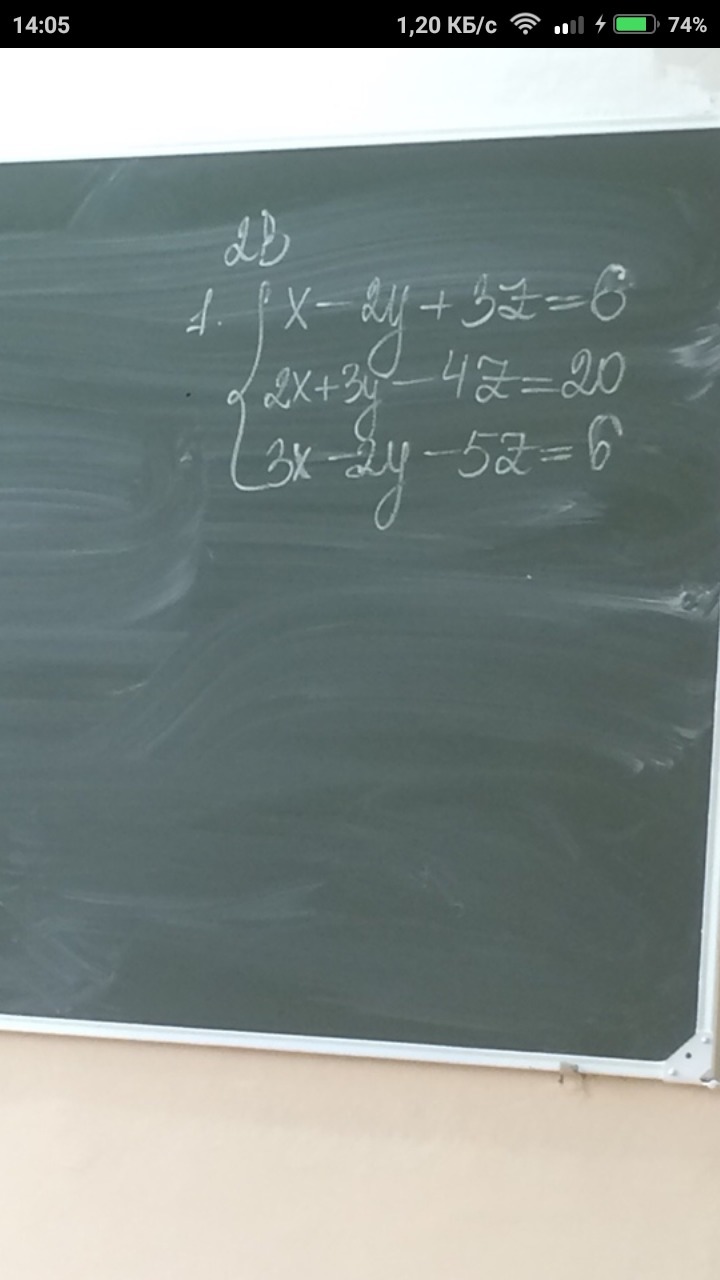 14:05 1,20 КБ/с 74%
2В
1. x - 2y + 3z = 6
2x + 3y - 4z = 20
3x - 2y - 5z = 6